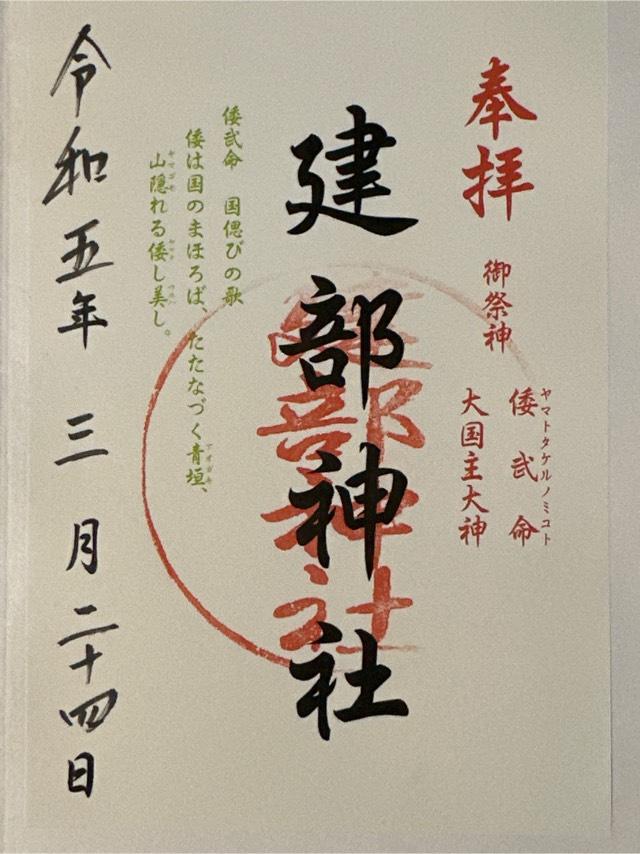 奉拝
御祭神
倭武命
ヤマトタケルノミコト
大国主大神
建部神社
建部神社
倭武命 国偲びの歌
倭は国のまほろば、たたなづく青垣、
アオガキ
山隠れる倭し美し。
ヤマゴモ
ヤマト
令和五年 三月二十四日